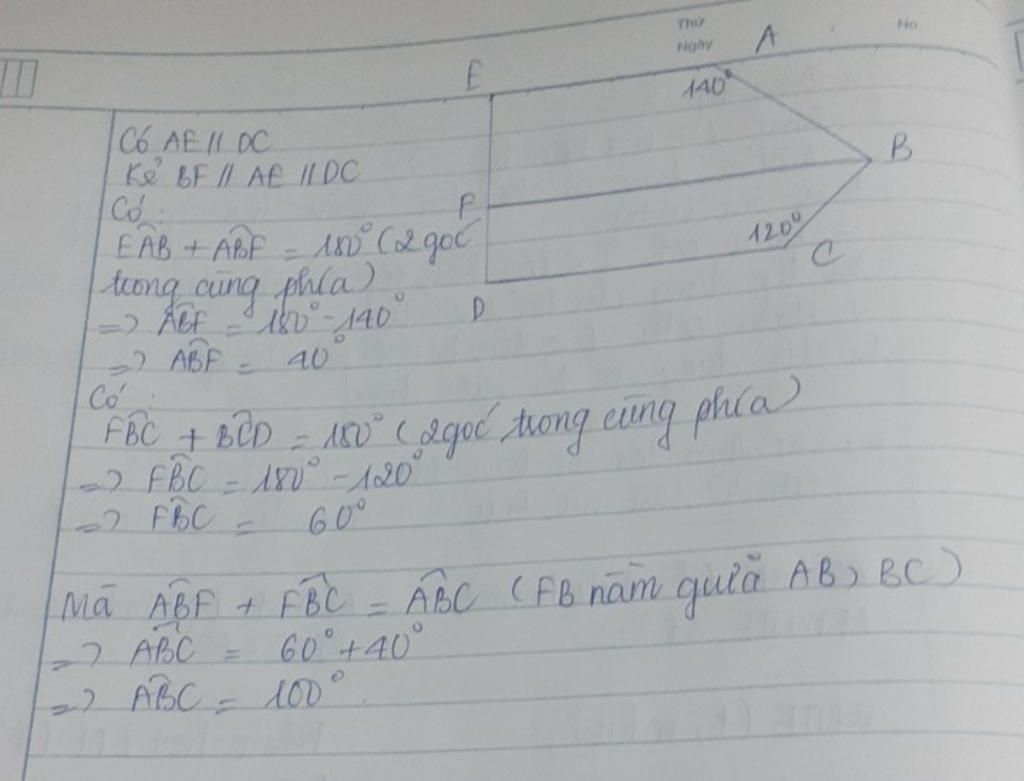 Thứ
Ngày
No
E
A
140°
B
F
120°
C
D
Có AE // DC
Kẻ BF // AE // DC
Có:
EAB + ABF = 180° (2 góc
trong cùng phía)
=> ABF = 180° - 140°
=> ABF = 40°
Có:
FBC + BCD = 180° (2 góc trong cùng phía)
=> FBC = 180° - 120°
=> FBC = 60°
Mà ABF + FBC = ABC (FB nằm giữa AB, BC)
=> ABC = 60° + 40°
=> ABC = 100°.